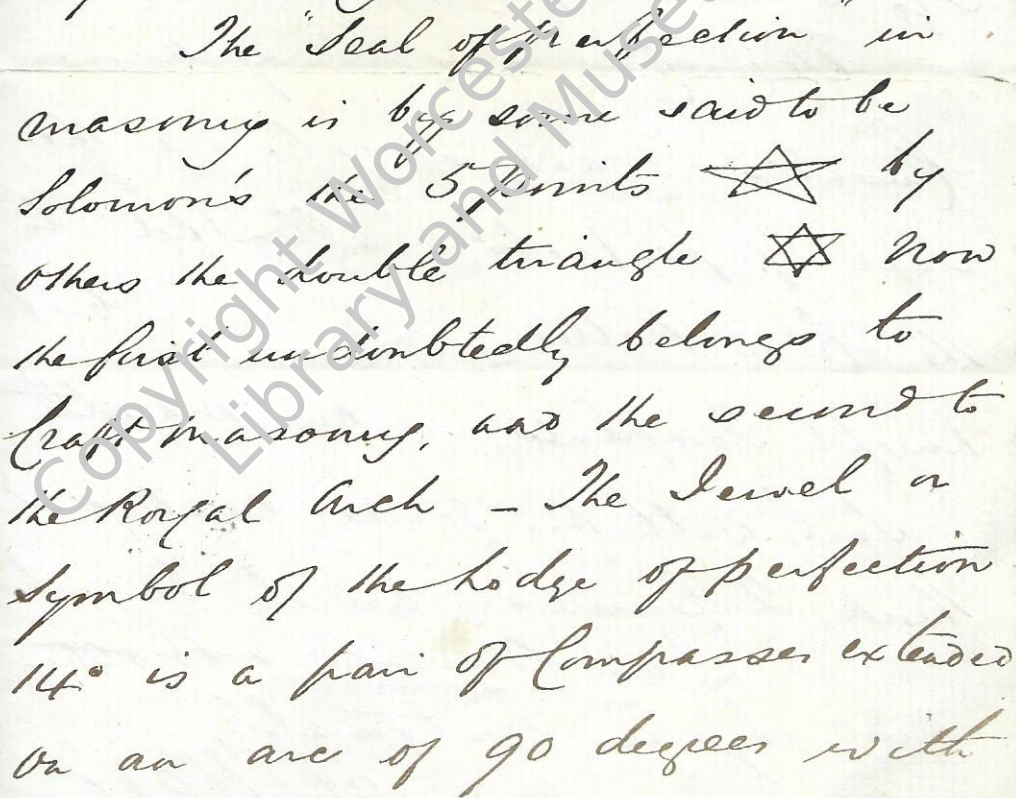 The "Seal of Perfection" in
masonry is by some said to be
Solomon's the 5 Points ☆ by
others the double triangle ✡ Now
the first undoubtedly belongs to
Craft Masonry, and the second to
the Royal Arch – The Jewel or
Symbol of the Lodge of perfection
14° is a pair of Compasses extended
on an arc of 90 degrees with
Copyright Worcester
Library and Muse